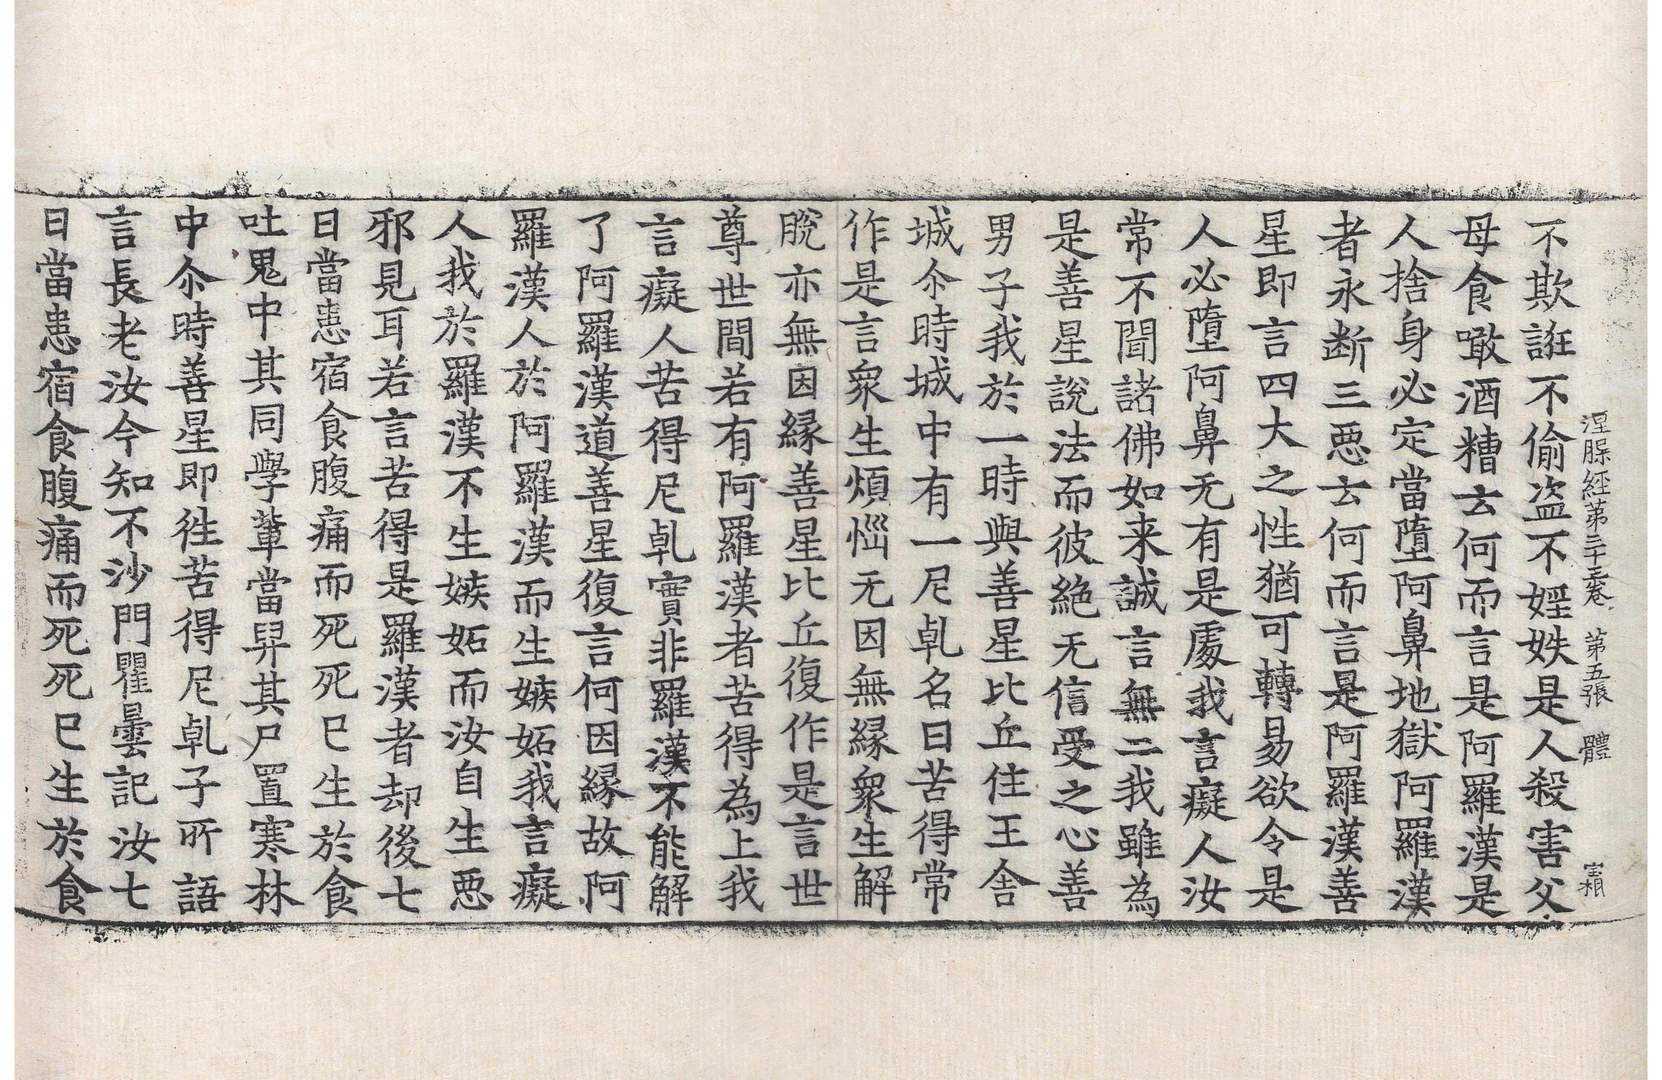 涅槃經第三十三卷 第五張 體
不欺誑不偷盗不婬妷是人殺害父
母食噉酒糟去何而言是阿羅漢是
人捨身必定當墮阿鼻地獄阿羅漢
者永断三惡去何而言是阿羅漢善
星即言四大之性猶可轉易欲令是
人必墮阿鼻无有是處我言癡人汝
常不聞諸佛如来誠言無二我雖為
是善星說法而彼絶无信受之心善
男子我於一時與善星比丘住王舍
城尒時城中有一尼乹名曰苦得常
作是言衆生煩惱无因無緣衆生解
脫亦無因緣善星比丘復作是言世
尊世間若有阿羅漢者苦得為上我
言癡人苦得尼乹實非羅漢不能解
了阿羅漢道善星復言何因緣故阿
羅漢人於阿羅漢而生嫉妬我言癡
人我於羅漢不生嫉妬而汝自生惡
邪見耳若言苦得是羅漢者却後七
日當患宿食腹痛而死死已生於食
吐鬼中其同學輩當舁其尸置寒林
中尒時善星即徃苦得尼乹子所語
言長老汝今知不沙門瞿曇記汝七
日當患宿食腹痛而死死已生於食